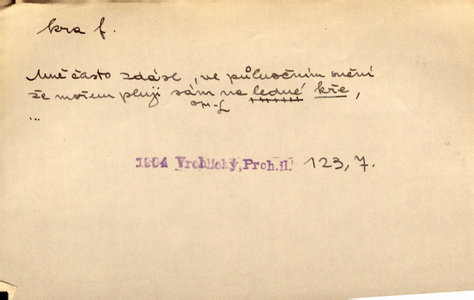 kra f.
Mně často zdá se, ve půlnočním snění
že mořem pluji sám na ledné kře,
...
1904 Vrchlický, Proh.II. 123,7.